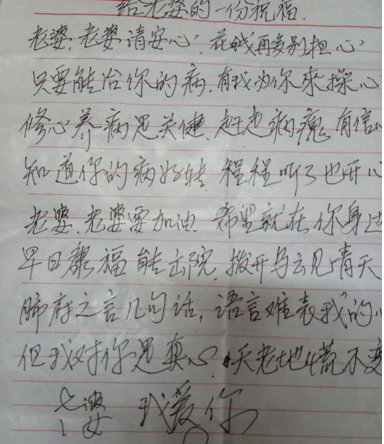 给老婆的一份祝福.
老婆,老婆请安心,花钱再多别担心
只要能治你的病,有我为你来操心
修心养病是关健.赶走病魔有信
知道你的病好转 程程听了也开心
老婆.老婆要加油.希望就在你身边
早日康福能出院.拨开乌云见晴天
肺府之言几句话,语言难表我的心
但我对你是真心.天老地荒不变
老婆 我爱你